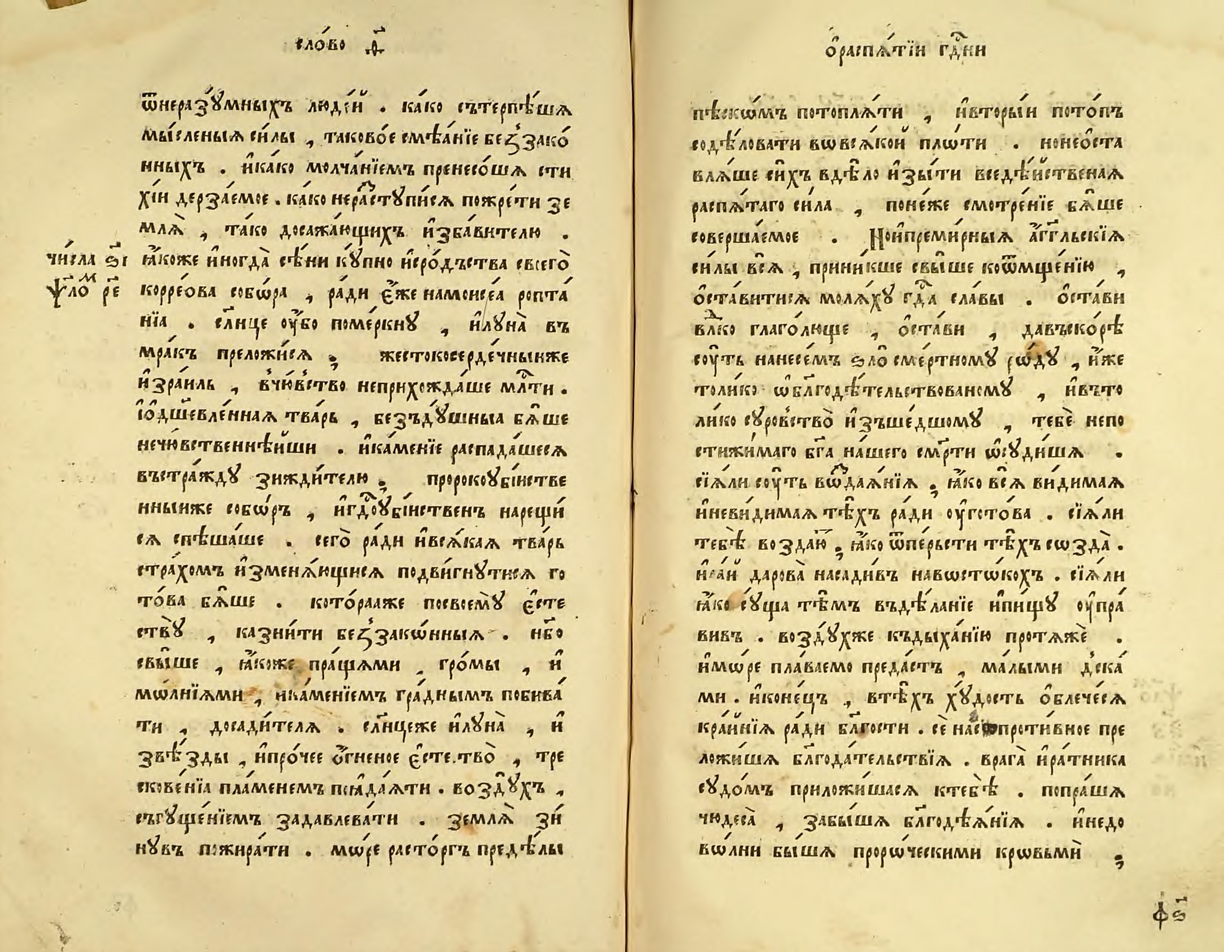 сло́во ѳ҃
ѿнеразꙋ́мныхъ людѐй . ка́ко сътерпѣ́шѧ
мы́сленыѧ си́лы , таково́е смѣѧ́нїе беꙁꙁако́
нныхъ . и҆ка́ко молча́нїемъ пренесо́шѧ сти
хі́и дерза́емое . ка́ко нера́стꙋписѧ пожре́ти зе
млѧ̀ , та́ко досажа́ющихъ и҆зба́вителю .
чи́сла ѕі
ꙗ҆́коже и҆ногда̀ сѣ́ни кꙋ́пно и҆сро́дъства своего̀
ѱало́м ре
корре́ова собѡ́ра , ра́ди є҆́же намоисе́а ропта́
нїа . сл҃нце ᲂу҆́бо поме́ркнꙋ , и҆лꙋна̀ въ
мра́къ преложи́сѧ ; жестокосерде́чныиже
и҆зра́иль , в̾чю́вство неприхожда́ше мл҃ти .
і҆ѻ҆дш҃евле́ннаѧ тва́рь , безъдꙋ́шныѧ бѧ́ше
нечю́вственнѣиши . и҆ка́менїе распада́шеесѧ
въстра́ждꙋ зижди́телю ; пророкоꙋбі́истве
нныиже собѡ́ръ , и҆гд҃оꙋбі́иственъ нарещи́
сѧ спѣша́ше . сего̀ ра́ди и҆всѧ́каѧ тва́рь
стра́хомъ и҆зменѧ́ющисѧ подви́гнꙋтисѧ го
то́ва бѧ́ше . кото́раѧже посвоемꙋ̀ є҆́сте
ствꙋ̀ , казни́ти беꙁꙁако́нныѧ . и҆́бо
свы́ше , ꙗ҆́коже пра́щѧми , гро́мы , и҆
мѡ́лнїѧми , и҆ка́менїемъ гра́днымъ побива́
ти , досади́телѧ . сл҃нцеже и҆лꙋна̀ , и҆
звѣ́зды , и҆про́чее ѻ҆́гненое є҆стество̀ , тре
скове́нїа пла́менемъ поѧ҆да́ѧти . во́здꙋхъ ,
съгꙋще́нїемъ задавлева́ти . землѧ̀ зи́
нꙋвъ пожира́ти . мо́ре расто́ргъ предѣ́лы
ѻ҆распѧ́тїи гд҃ни
пѣско́мъ потоплѧ́ти , и҆вторы́и пото́пъ
содѣ́ловати вѡвсѧ́кои пло́ти . нонеѻ҆ста
влѧ́ше си́хъ вдѣ́ло и҆зы́ти вседѣ́иственаѧ
распѧ́таго си́ла , поне́же смотре́нїе бѧ́ше
соверша́емое . Но́ипреми́рныѧ а҆́гг҃льскїѧ
си́лы всѧ̀ , прини́кше свы́ше коѿмще́нїю ,
ѻ҆ста́витисѧ молѧ́хꙋ гд҃а сла́вы . ѻ҆ста́ви
влⷣко глаго́люще , ѻ҆ста́ви , давъско́рѣ
сꙋ́ть нанесе́мъ ѕло̀ сме́ртномꙋ ро́дꙋ , и҆́же
толи́ко ѡ҆бл҃годѣ́тельствованомꙋ , и҆въто
ли́ко сꙋро́вство и҆зъше́дшомꙋ , тебѐ непо
стижи́маго бг҃а на́шего сме́рти ѡ҆сꙋди́шѧ .
сїѧ́ли сꙋ́ть вѡздаѧ́нїѧ ; ꙗ҆́ко всѧ̀ ви́димаѧ
и҆неви́димаѧ тѣ́хъ ра́ди ᲂу҆гото́ва . сїѧ́ли
тебѣ̀ воздаю̀ , ꙗ҆́ко ѿпе́рьсти тѣ́хъ созда̀ .
и҆ра́й дарова̀ насади́въ навѡсто́кохъ . сїѧ́ли
ꙗ҆́ко сꙋ́ща тѣ́мъ въдѣ́ланїе и҆пи́щꙋ ᲂу҆пра́
вивъ . во́здꙋхже къдыха́нїю протѧ́же .
и҆мо́ре пла́ваемо преда́стъ , ма́лыми д̾ска́
ми . и҆коне́цъ , втѣ́хъ хꙋ́дость ѻ҆блече́сѧ
кра́йнїѧ ра́ди бл҃гости . се̏ насопроти́вное пре
ложи́шѧ бл҃года́тельствїѧ . врага̀ и҆ра́тника
сꙋдо́мъ приложи́шасѧ ктебѣ̀ . попра́шѧ
чюдеса̀ , забы́шѧ бл҃годѣѧ́нїѧ . и҆недо
во́лни бы́шѧ проро́ческими кровьмѝ ;
ф҃ѕі